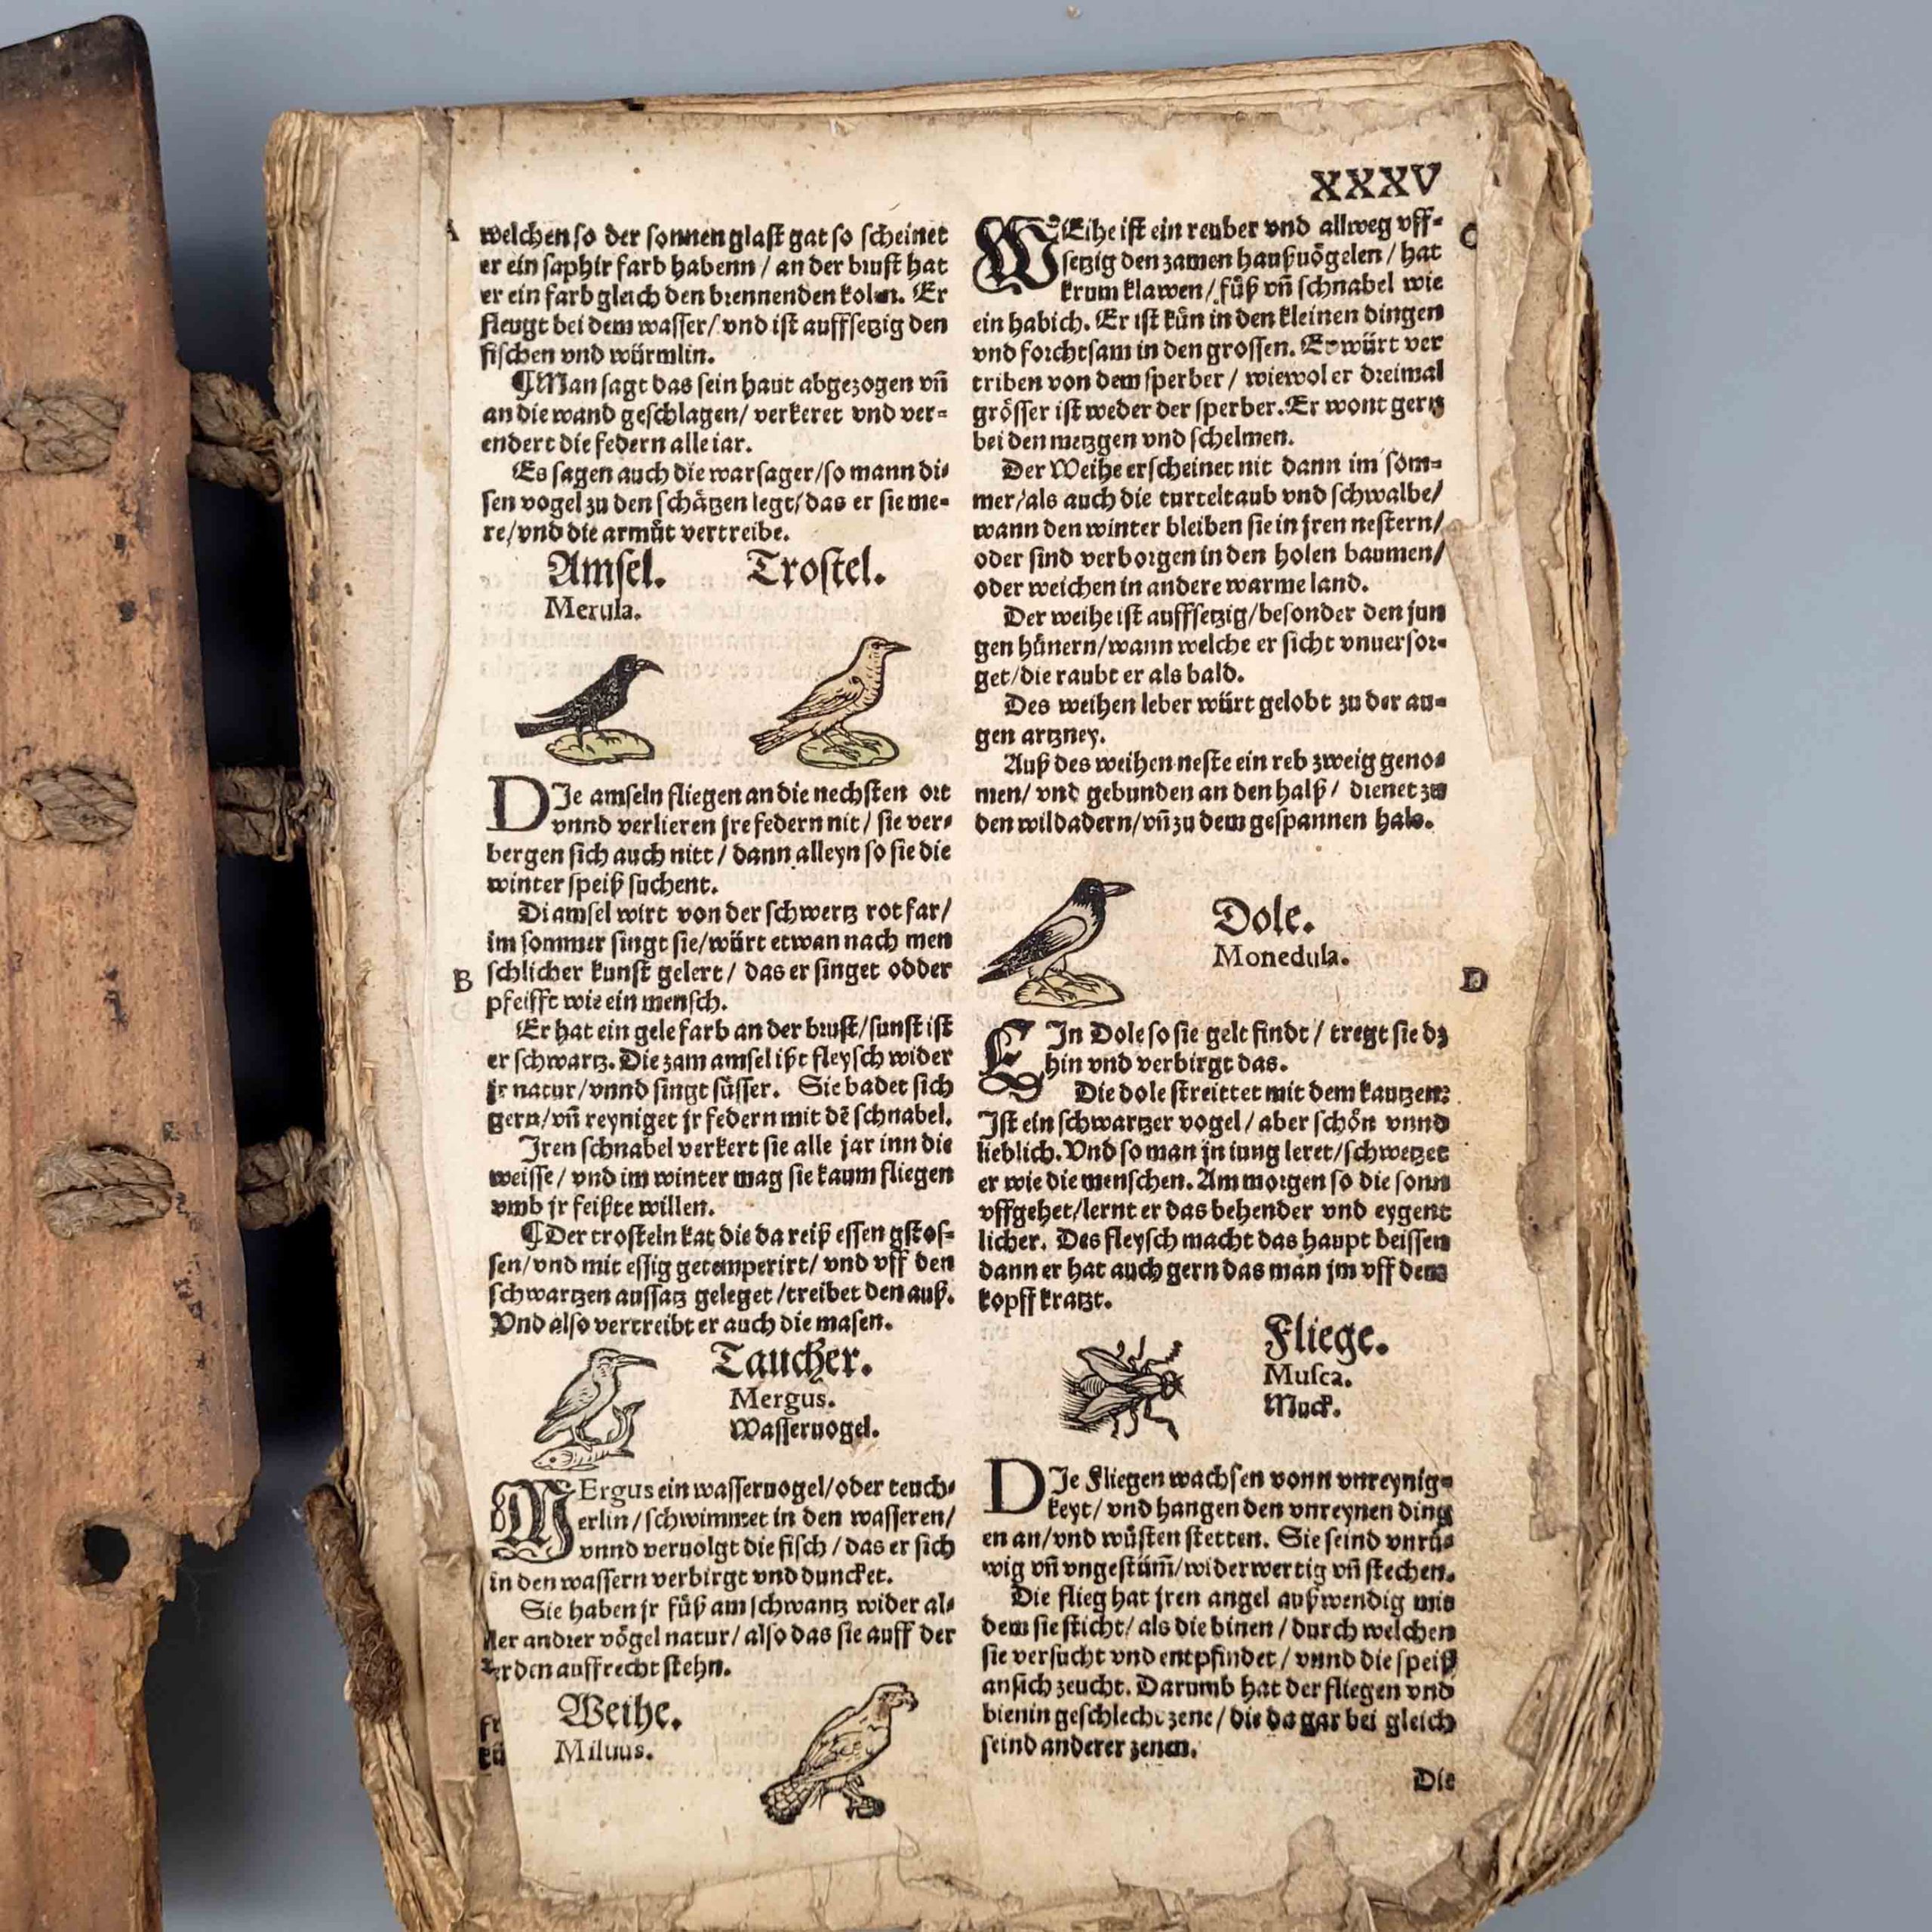 XXXV
A
welchen so der sonnen glast gat so scheinet
er ein saphir farb habenn / an der brust hat
er ein farb gleich den brennenden kolen. Er
fleugt bei dem wasser / vnd ist auffsetzig den
fischen vnd würmlin.
¶Man sagt das sein haut abgezogen vn̄
an die wand geschlagen / verkeret vnd ver⸗
endert die federn alle iar.
Es sagen auch die warsager / so mann di⸗
sen vogel zu den schätzen legt / das er sie me⸗
re / vnd die armůt vertreibe.
Amsel. Trostel.
Merula.
DIe amseln fliegen an die nechsten ort
vnnd verlieren jre federn nit / sie ver⸗
bergen sich auch nitt / dann alleyn so sie die
winter speiß suchent.
Di amsel wirt von der schwertz rotfar /
im sommer singt sie / würt etwan nach men
B
schlicher kunst gelert / das er singet odder
pfeifft wie ein mensch.
Er hat ein gele farb an der brust / sunst ist
er schwartz. Die zam amsel ißt fleysch wider
jr natur / vnnd singt süsser. Sie badet sich
gern / vn̄ reyniget jr federn mit dē schnabel.
Jren schnabel verkert sie alle jar inn die
weisse / vnd im winter mag sie kaum fliegen
vmb jr feißte willen.
¶Der trosteln kat die da reiß essen gstos⸗
sen / vnd mit essig getemperirt / vnd vff den
schwartzen aussatz geleget / treibet den auß.
Vnd also vertreibt er auch die masen.
Taucher.
Mergus.
Wasseruogel.
MErgus ein wasseruogel / oder teuch⸗
erlin / schwimmet in den wasseren /
vnnd veruolgt die fisch / das er sich
in den wassern verbirgt vnd duncket.
Sie haben jr füß am schwantz wider al⸗
ler andrer vögel natur / also das sie auff der
erden auffrecht stehn.
Weihe.
Miluus.
C
WEihe ist ein reuber vnd allweg vff⸗
setzig den zamen haußuögelen / hat
krum klawen / füß vn̄ schnabel wie
ein habich. Er ist kün in den kleinen dingen
vnd forchtsam in den grossen. Er würt ver
triben von dem sperber / wiewol er dreimal
grösser ist weder der sperber. Er wont gern
bei den metzgen vnd schelmen.
Der Weihe erscheinet nit dann im som⸗
mer / als auch die turteltaub vnd schwalbe /
wann den winter bleiben sie in jren nestern /
oder sind verborgen in den holen baumen /
oder weichen in andere warme land.
Der weihe ist auffsetzig / besonder den jun
gen hünern / wann welche er sicht vnuersor⸗
get / die raubt er als bald.
Des weihen leber würt gelobt zu der au⸗
gen artzney.
Auß des weihen neste ein reb zweig geno⸗
men / vnd gebunden an den halß / dienet zu
den wildadern / vn̄ zu dem gespannen hals.
Dole.
Monedula.
D
EIn Dole so sie gelt findt / tregt sie dz
hin vnd verbirgt das.
Die dole streittet mit dem kautzen:
Ist ein schwartzer vogel / aber schön vnnd
lieblich. Vnd so man jn iung leret / schwetzet
er wie die menschen. Am morgen so die sonn
vffgehet / lernt er das behender vnd eygent
licher. Des fleysch macht das haupt beissen
dann er hat auch gern das man jm vff dem
kopff kratzt.
Fliege.
Musca.
Muck.
DIe Fliegen wachsen vonn vnreynig⸗
keyt / vnd hangen den vnreynen ding
en an / vnd wüsten stetten. Sie seind vnrů⸗
wig vn̄ vngestüm̄ / widerwertig vn̄ stechen.
Die flieg hat jren angel außwendig mit
dem sie sticht / als die binen / durch welchen
sie versucht vnd entpfindet / vnnd die speiß
an sich zeucht. Darumb hat der fliegen vnd
bienin geschlecht zene / die da gar bei gleich
seind anderer zenen.
Die